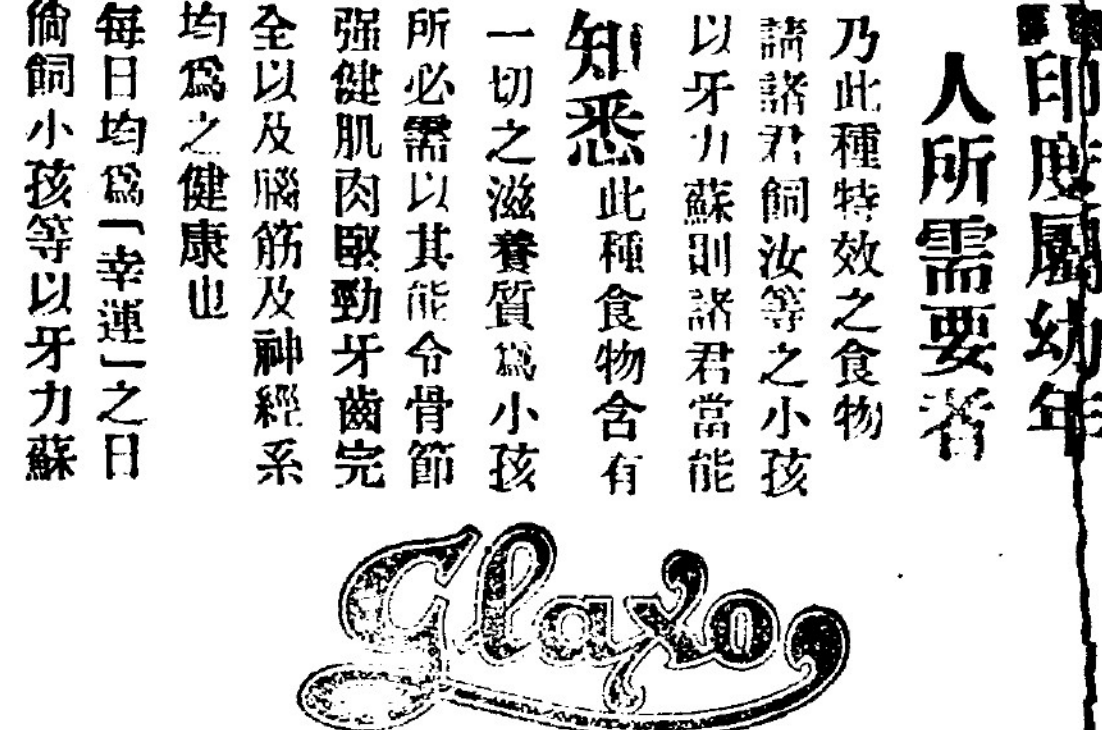 印度屬幼年
人所需要者
乃此種特效之食物
請諸君飼汝等之小孩
以牙力蘇則諸君當能
知悉此種食物含有
一切之滋養質爲小孩
所必需以其能令骨節
强健肌肉堅勁牙齒完
全以及腦筋及神經系
均爲之健康也
每日均爲「幸運」之日
倘飼小孩等以牙力蘇
Glaxo